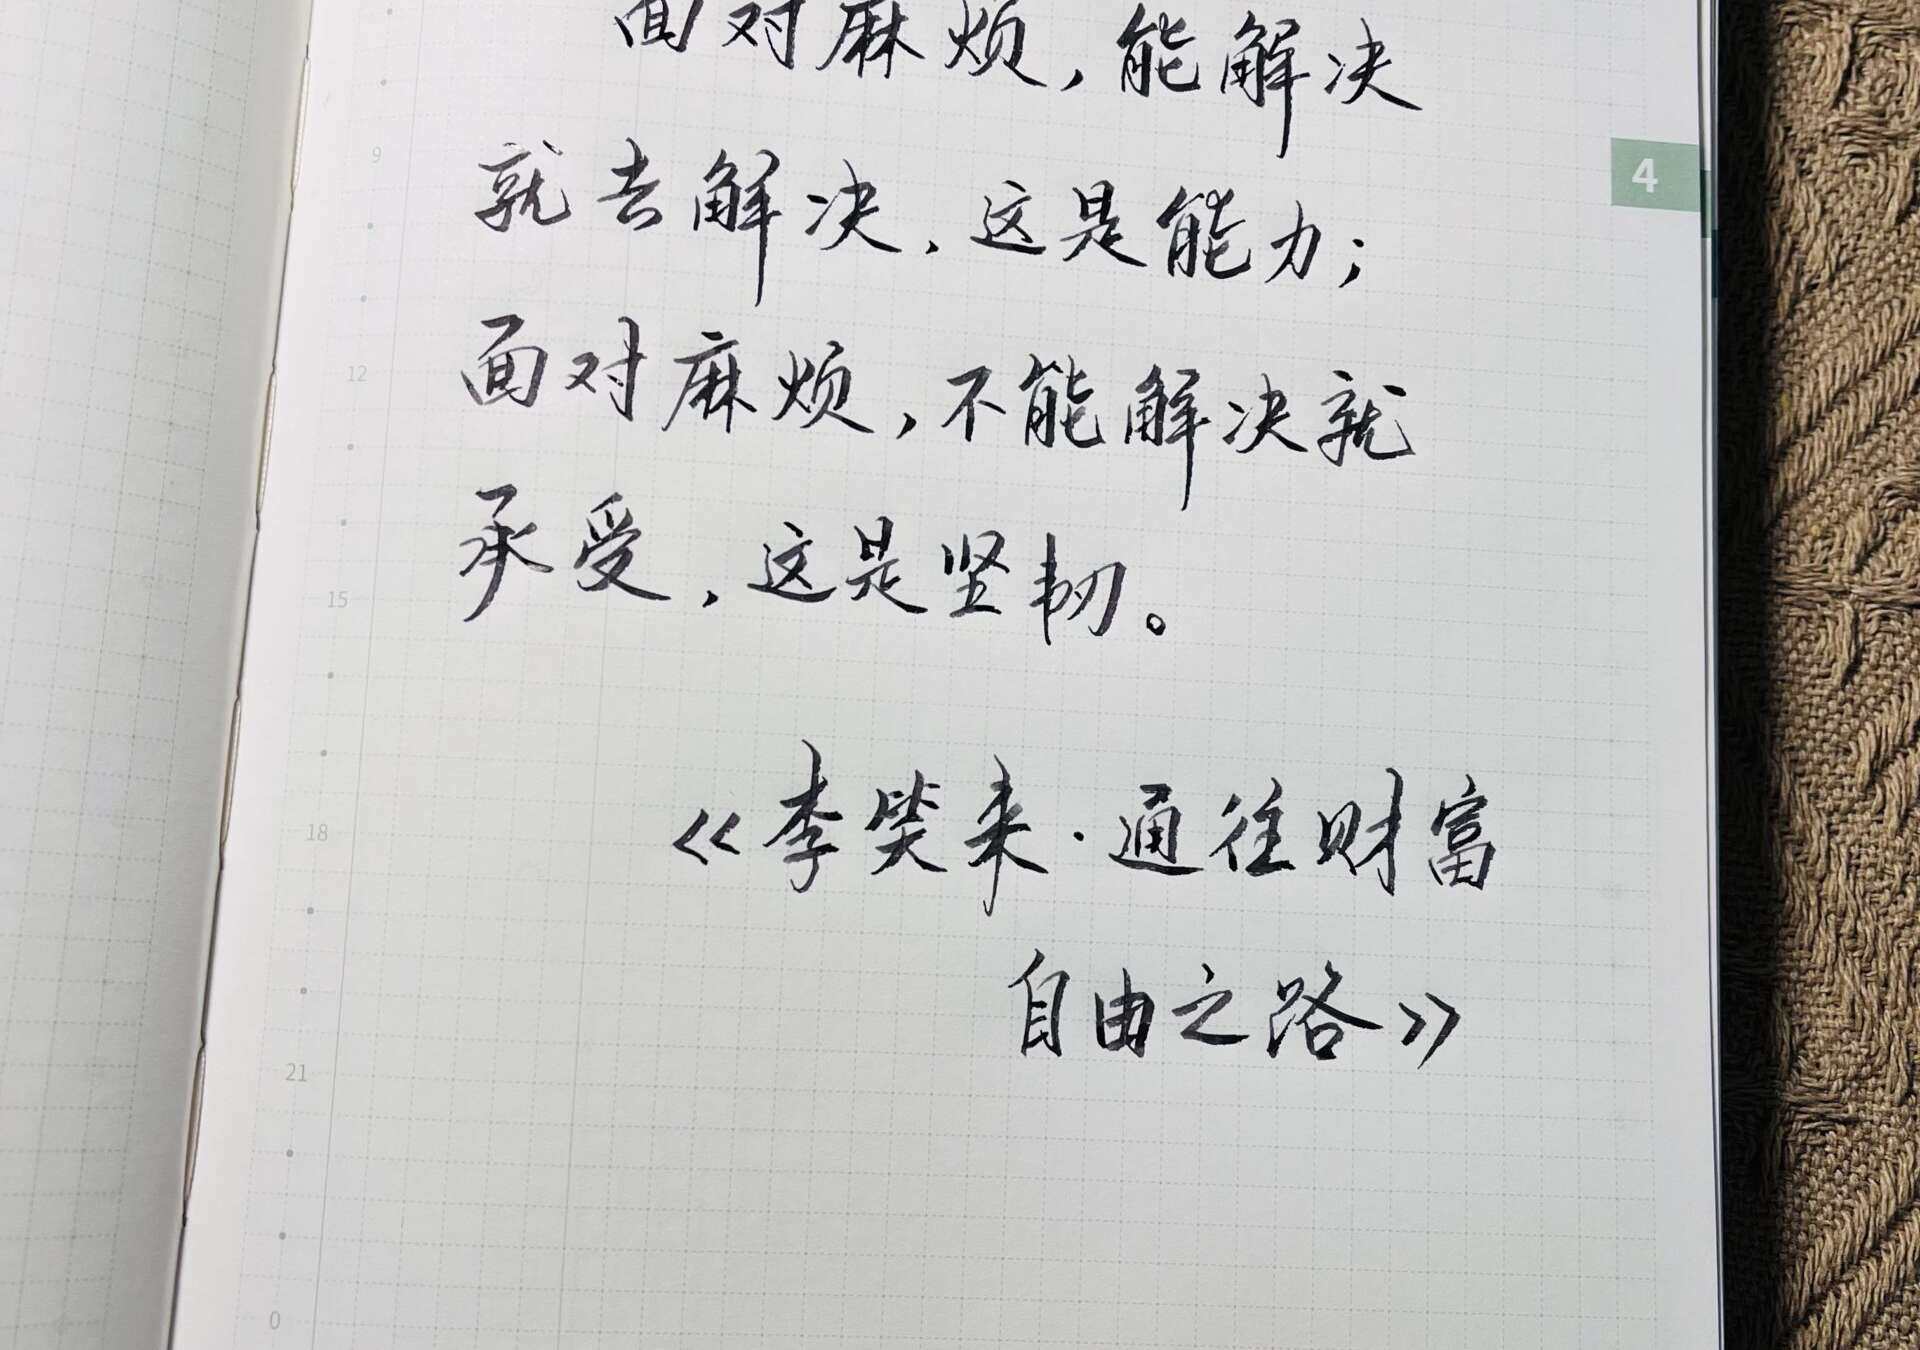 面对麻烦，能解决
4
9
就去解决，这是能力；
12
面对麻烦，不能解决就
承受，这是坚韧。
15
18
《李笑来·通往财富
自由之路》
21
0